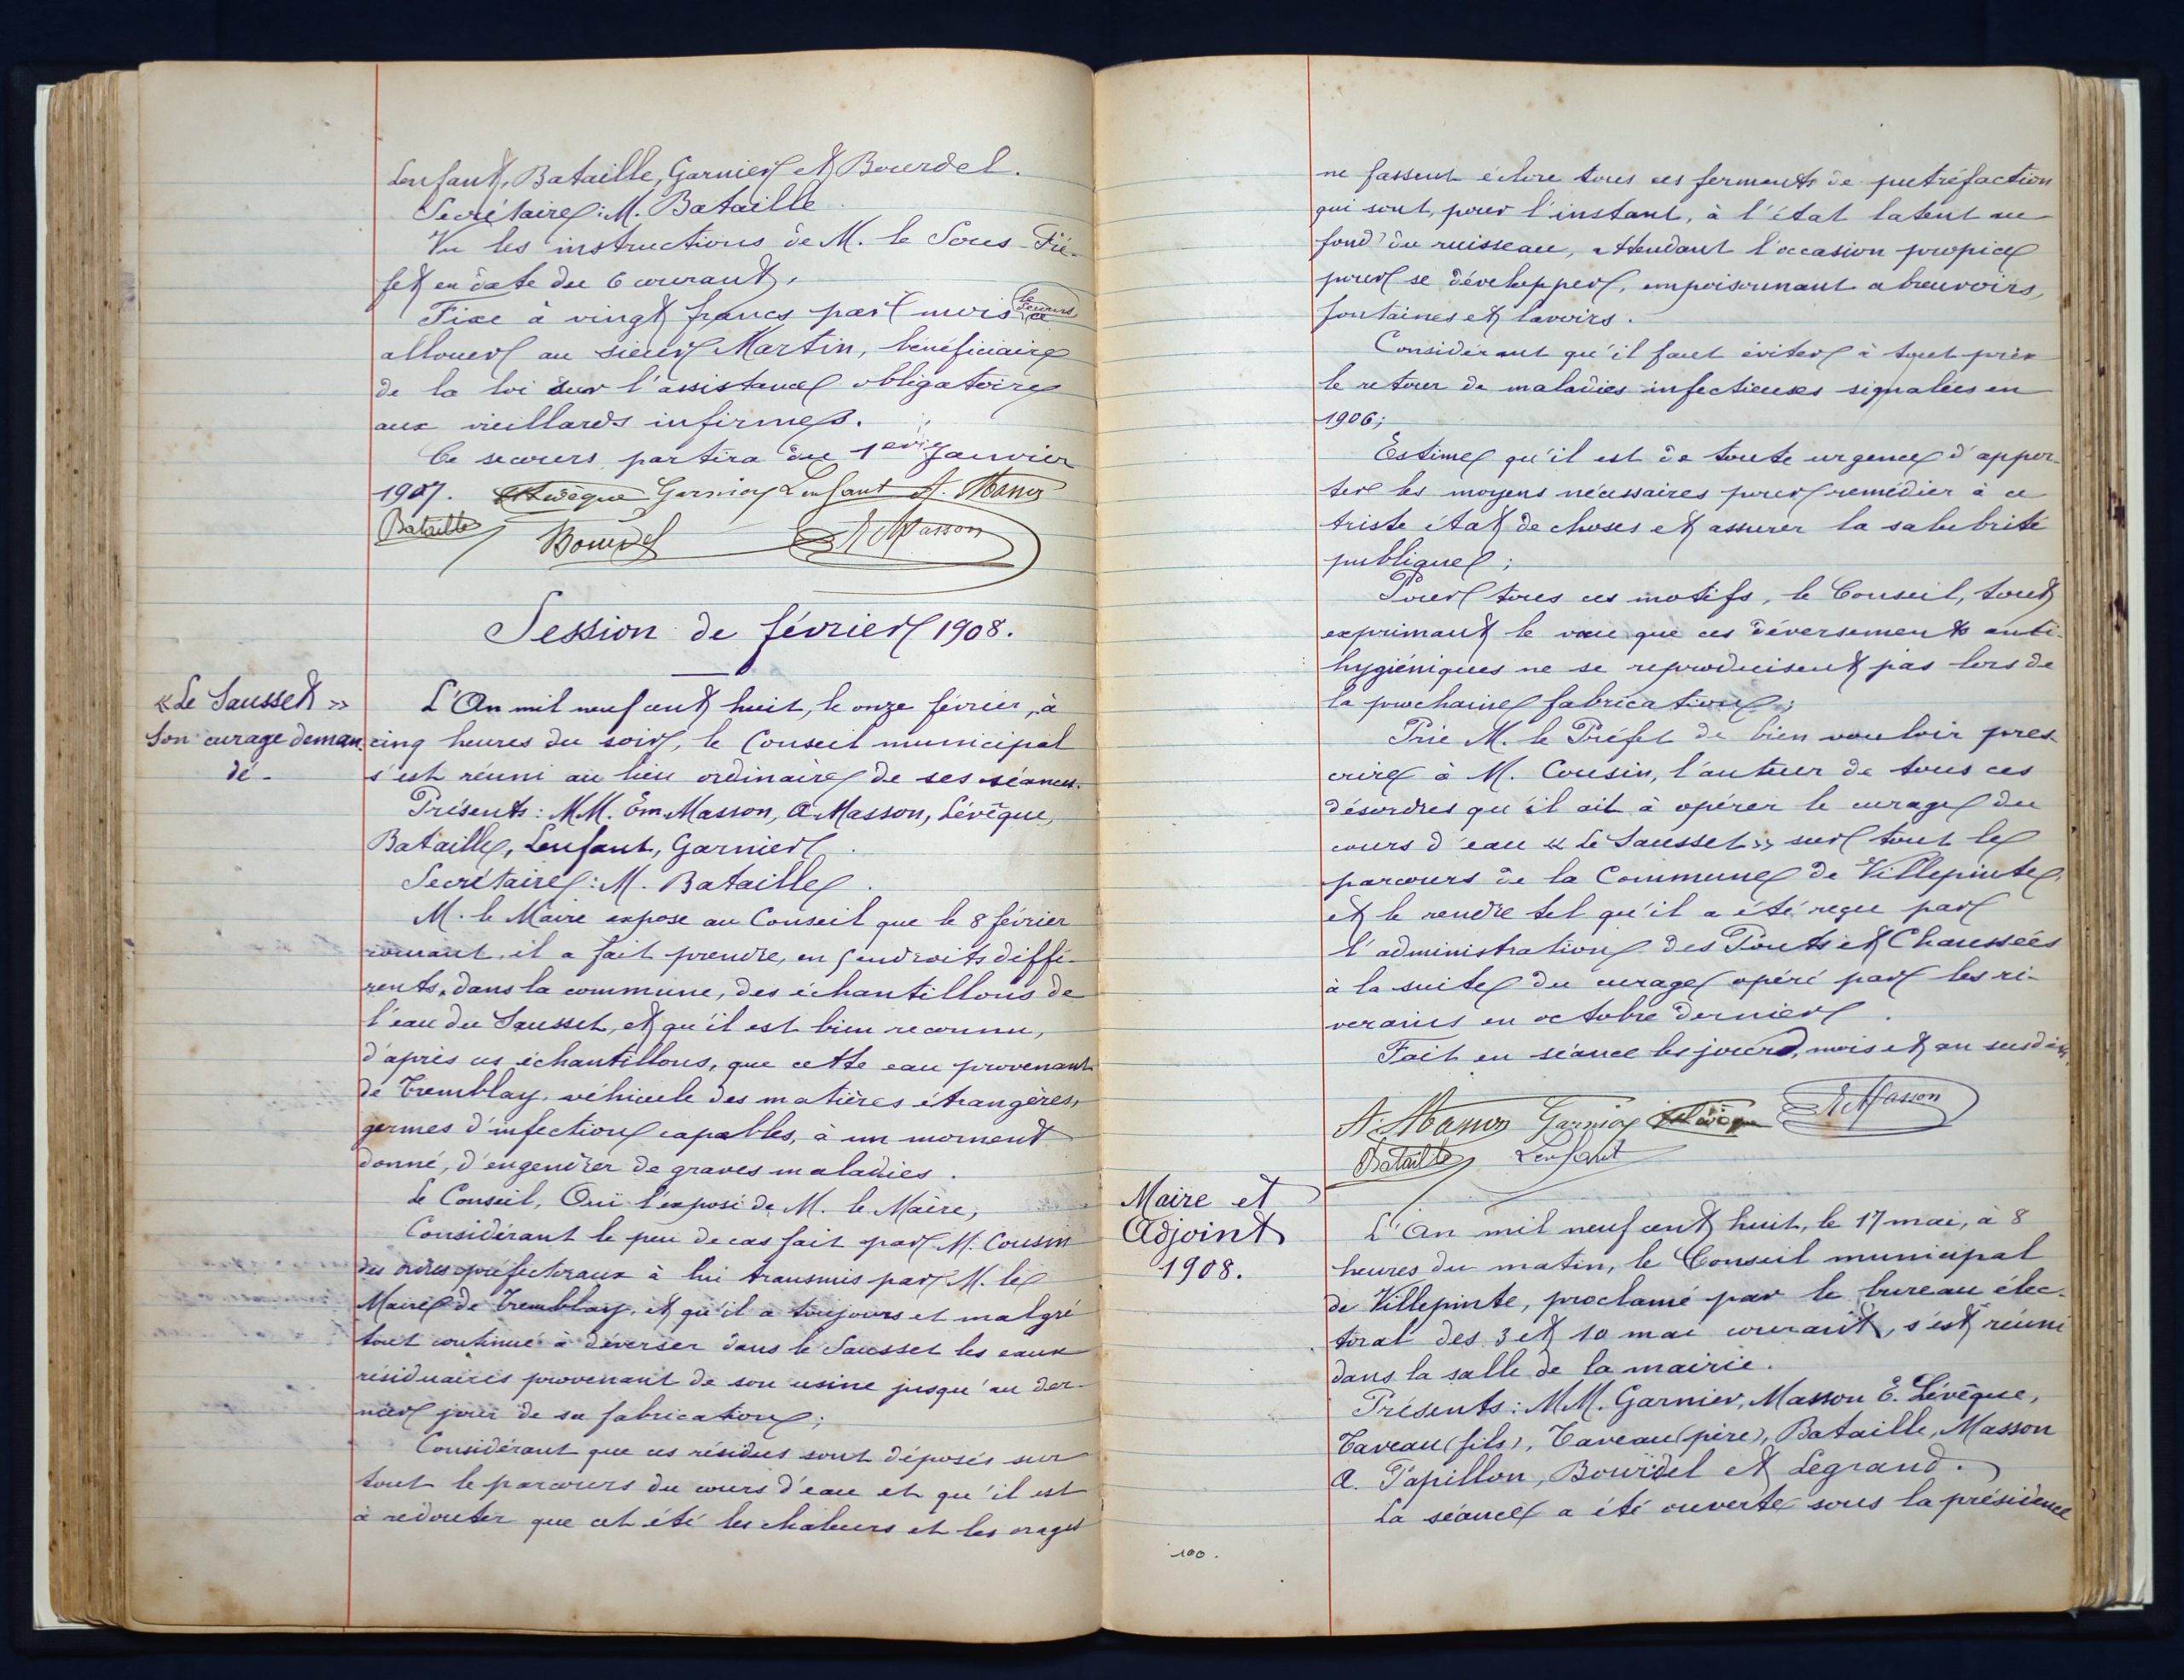 Lenfant, Bataille, Garnier et Bourdel.
Secrétaire : M. Bataille.
Vu les instructions de M. le Sous-Pré-
fet en date du 6 courant,
Fixe à vingt francs par mois le secours à
allouer au sieur Martin, bénéficiaire
de la loi sur l'assistance obligatoire
aux vieillards infirmes.
Ce secours partira du 1er Janvier
1907. Lévêque Garnier Lenfant A. Masson
Bataille Bourdel E Masson
Session de février 1908.
« Le Sausset »
Son curage deman-
dé -
L'An mil neuf cent huit, le onze février, à
cinq heures du soir, le Conseil municipal
s'est réuni au lieu ordinaire de ses séances.
Présents : MM. Em. Masson, A. Masson, Lévêque,
Bataille, Lenfant, Garnier.
Secrétaire : M. Bataille.
M. le Maire expose au Conseil que le 8 février
courant, il a fait prendre, en 5 endroits diffé-
rents, dans la commune, des échantillons de
l'eau du Sausset, et qu'il est bien reconnu,
d'après ces échantillons, que cette eau provenant
de Tremblay, véhicule des matières étrangères,
germes d'infection capables, à un moment
donné, d'engendrer de graves maladies.
Le Conseil, Ouï l'exposé de M. le Maire,
Considérant le peu de cas fait par M. Cousin
des ordres préfectoraux à lui transmis par M. le
Maire de Tremblay, et qu'il a toujours et malgré
tout continué à déverser dans le Sausset les eaux
résiduaires provenant de son usine jusqu'au der-
nier jour de sa fabrication ;
Considérant que ces résidus sont déposés sur
tout le parcours du cours d'eau et qu'il est
à redouter que cet été les chaleurs et les orages
ne fassent éclore tous ces ferments de putréfaction
qui sont, pour l'instant, à l'état latent au
fond du ruisseau, attendant l'occasion propice
pour se développer, empoisonnant abreuvoirs,
fontaines et lavoirs.
Considérant qu'il faut éviter à tout prix
le retour de maladies infectieuses signalées en
1906 ;
Estime qu'il est de toute urgence d'appor-
ter les moyens nécessaires pour remédier à ce
triste état de choses et assurer la salubrité
publique ;
Pour tous ces motifs, le Conseil, tout
exprimant le vœu que ces déversements anti-
hygiéniques ne se reproduisent pas lors de
la prochaine fabrication ;
Prie M. le Préfet de bien vouloir pres-
crire à M. Cousin, l'auteur de tous ces
désordres qu'il ait à opérer le curage du
cours d'eau « Le Sausset » sur tout le
parcours de la Commune de Villepinte,
et le rendre tel qu'il a été reçu par
l'administration des Ponts et Chaussées
à la suite du curage opéré par les ri-
verains en octobre dernier.
Fait en séance les jour, mois et an susdits.
A. Masson Garnier Lévêque E Masson
Bataille Lenfant
Maire et
Adjoint
1908.
L'An mil neuf cent huit, le 17 mai, à 8
heures du matin, le Conseil municipal
de Villepinte, proclamé par le bureau élec-
toral des 3 et 10 mai courant, s'est réuni
dans la salle de la mairie.
Présents : MM. Garnier, Masson E. Lévêque,
Taveau (fils), Taveau (père), Bataille, Masson
A. Papillon, Bourdel et Legrand.
La séance a été ouverte sous la présidence
100.